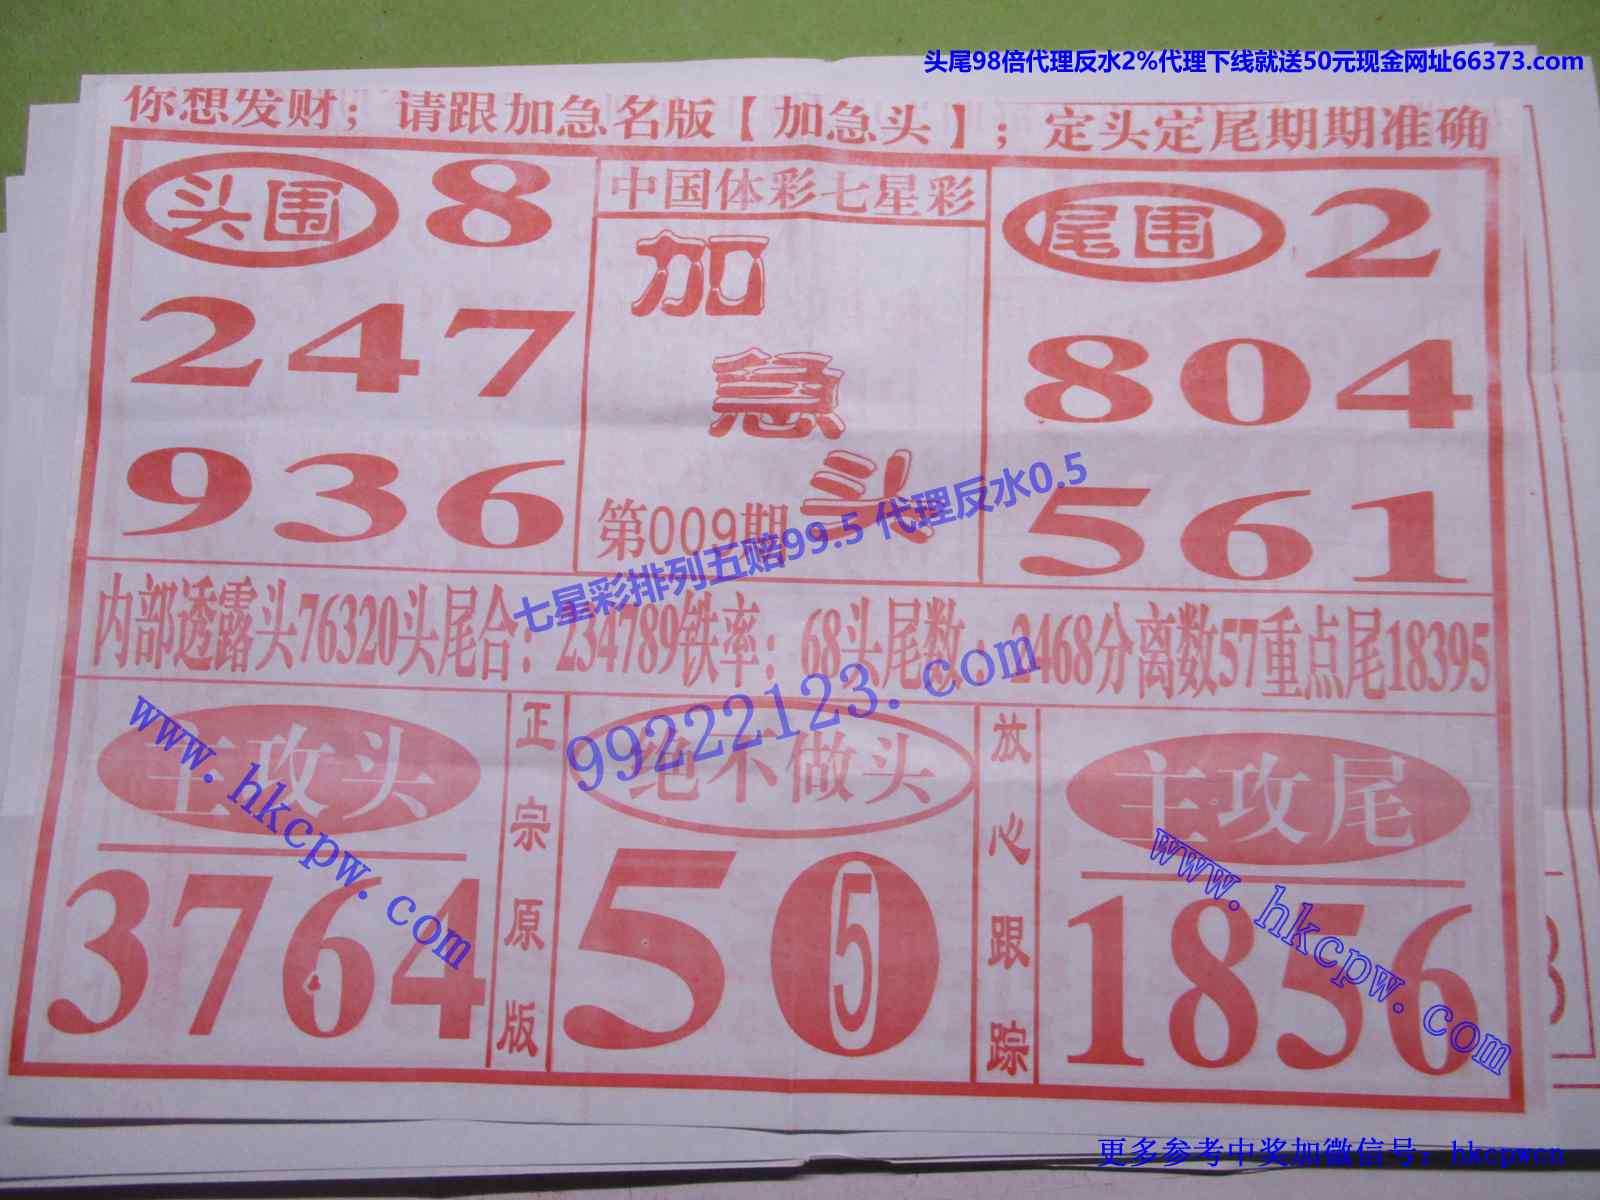 头尾98倍代理反水2%代理下线就送50元现金网址66373.com
你想发财；请跟加急名版【加急头】；定头定尾期期准确
头围 8
247
936
中国体彩七星彩
加
急
头
第009期
尾围 2
804
561
七星彩排列五赔99.5 代理反水0.5
内部透露头76320头尾合：234789铁率：68头尾数：2468分离数57重点尾18395
99222123.com
www.hkcpw.com
主攻头
3764
正宗原版
绝不做头
50
5
放心跟踪
主攻尾
1856
www.hkcpw.com
更多参考中奖加微信号：hkcpwcn